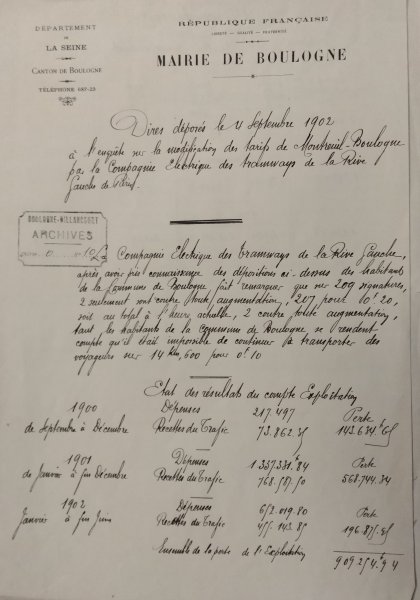 DÉPARTEMENT
DE
LA SEINE
CANTON DE BOULOGNE
TÉLÉPHONE 687-23
RÉPUBLIQUE FRANÇAISE
LIBERTÉ — ÉGALITÉ — FRATERNITÉ
MAIRIE DE BOULOGNE
Dires déposés le 4 Septembre 1902
à l'enquête sur la modification des tarifs de Montreuil-Boulogne
par la Compagnie Electrique des tramways de la Rive
Gauche de Paris.
BOULOGNE-BILLANCOURT
ARCHIVES
La Compagnie Electrique des Tramways de la Rive Gauche,
après avoir pris connaissance des dépositions ci-dessus des habitants
de la Commune de Boulogne, fait remarquer que sur 209 signatures,
2 seulement sont contre toute augmentation, 207 pour 0f 20,
soit au total à l'heure actuelle, 2 contre toute augmentation,
tant, les habitants de la Commune de Boulogne, se rendent
compte qu'il était impossible de continuer à transporter des
voyageurs sur 14 Km,600 pour 0f 10
Etat des résultats du compte Exploitation
1900 Dépenses 217.497 Perte
de Septembre à Décembre Recettes du Trafic 73.862.35 143.634.65
1901 Dépenses Perte
de Janvier à fin Décembre Recettes du Trafic 768.587.50 568.744.34
1902 Dépenses 652.019.80 Perte
Janvier à fin Juin Recettes du Trafic 455.143.85 196.875.95
Ensemble de la perte de l'Exploitation 909.254.94